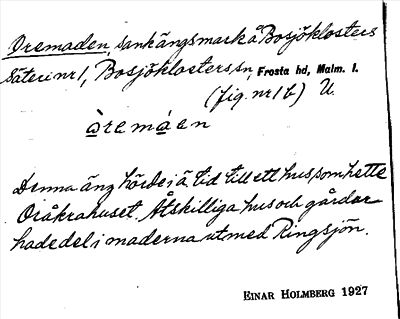 Oremaden, sankängsmark å Bosjöklosters
Säteri nr 1, Bosjöklosters sn, Frosta hd, Malm. l.
(fig. nr 1 b) U.
òremáen
Denna äng hörde i ä. tid till ett hus som hette
Oråkrahuset. Åtskilliga hus och gårdar
hade del i maderna utmed Ringsjön.
EINAR HOLMBERG 1927